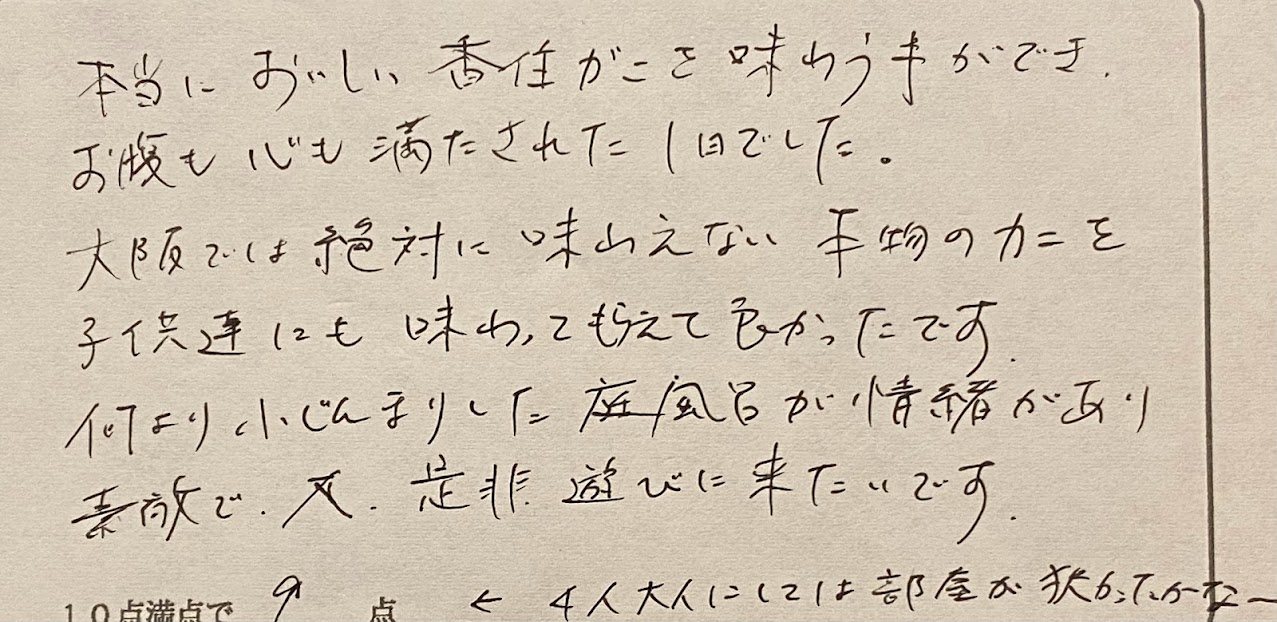 本当に おいしい 香住がにを 味わう事ができ、
お腹も心も 満たされた 1日でした。
大阪では絶対に 味わえない 本物のカニを
子供達にも 味わってもらえて 良かったです。
何より 小じんまりした 庭風呂が 情緒があり
素敵で、又、是非 遊びに来たいです。
10点満点で 9 点 ← 4人大人にしては部屋が狭かったかなー